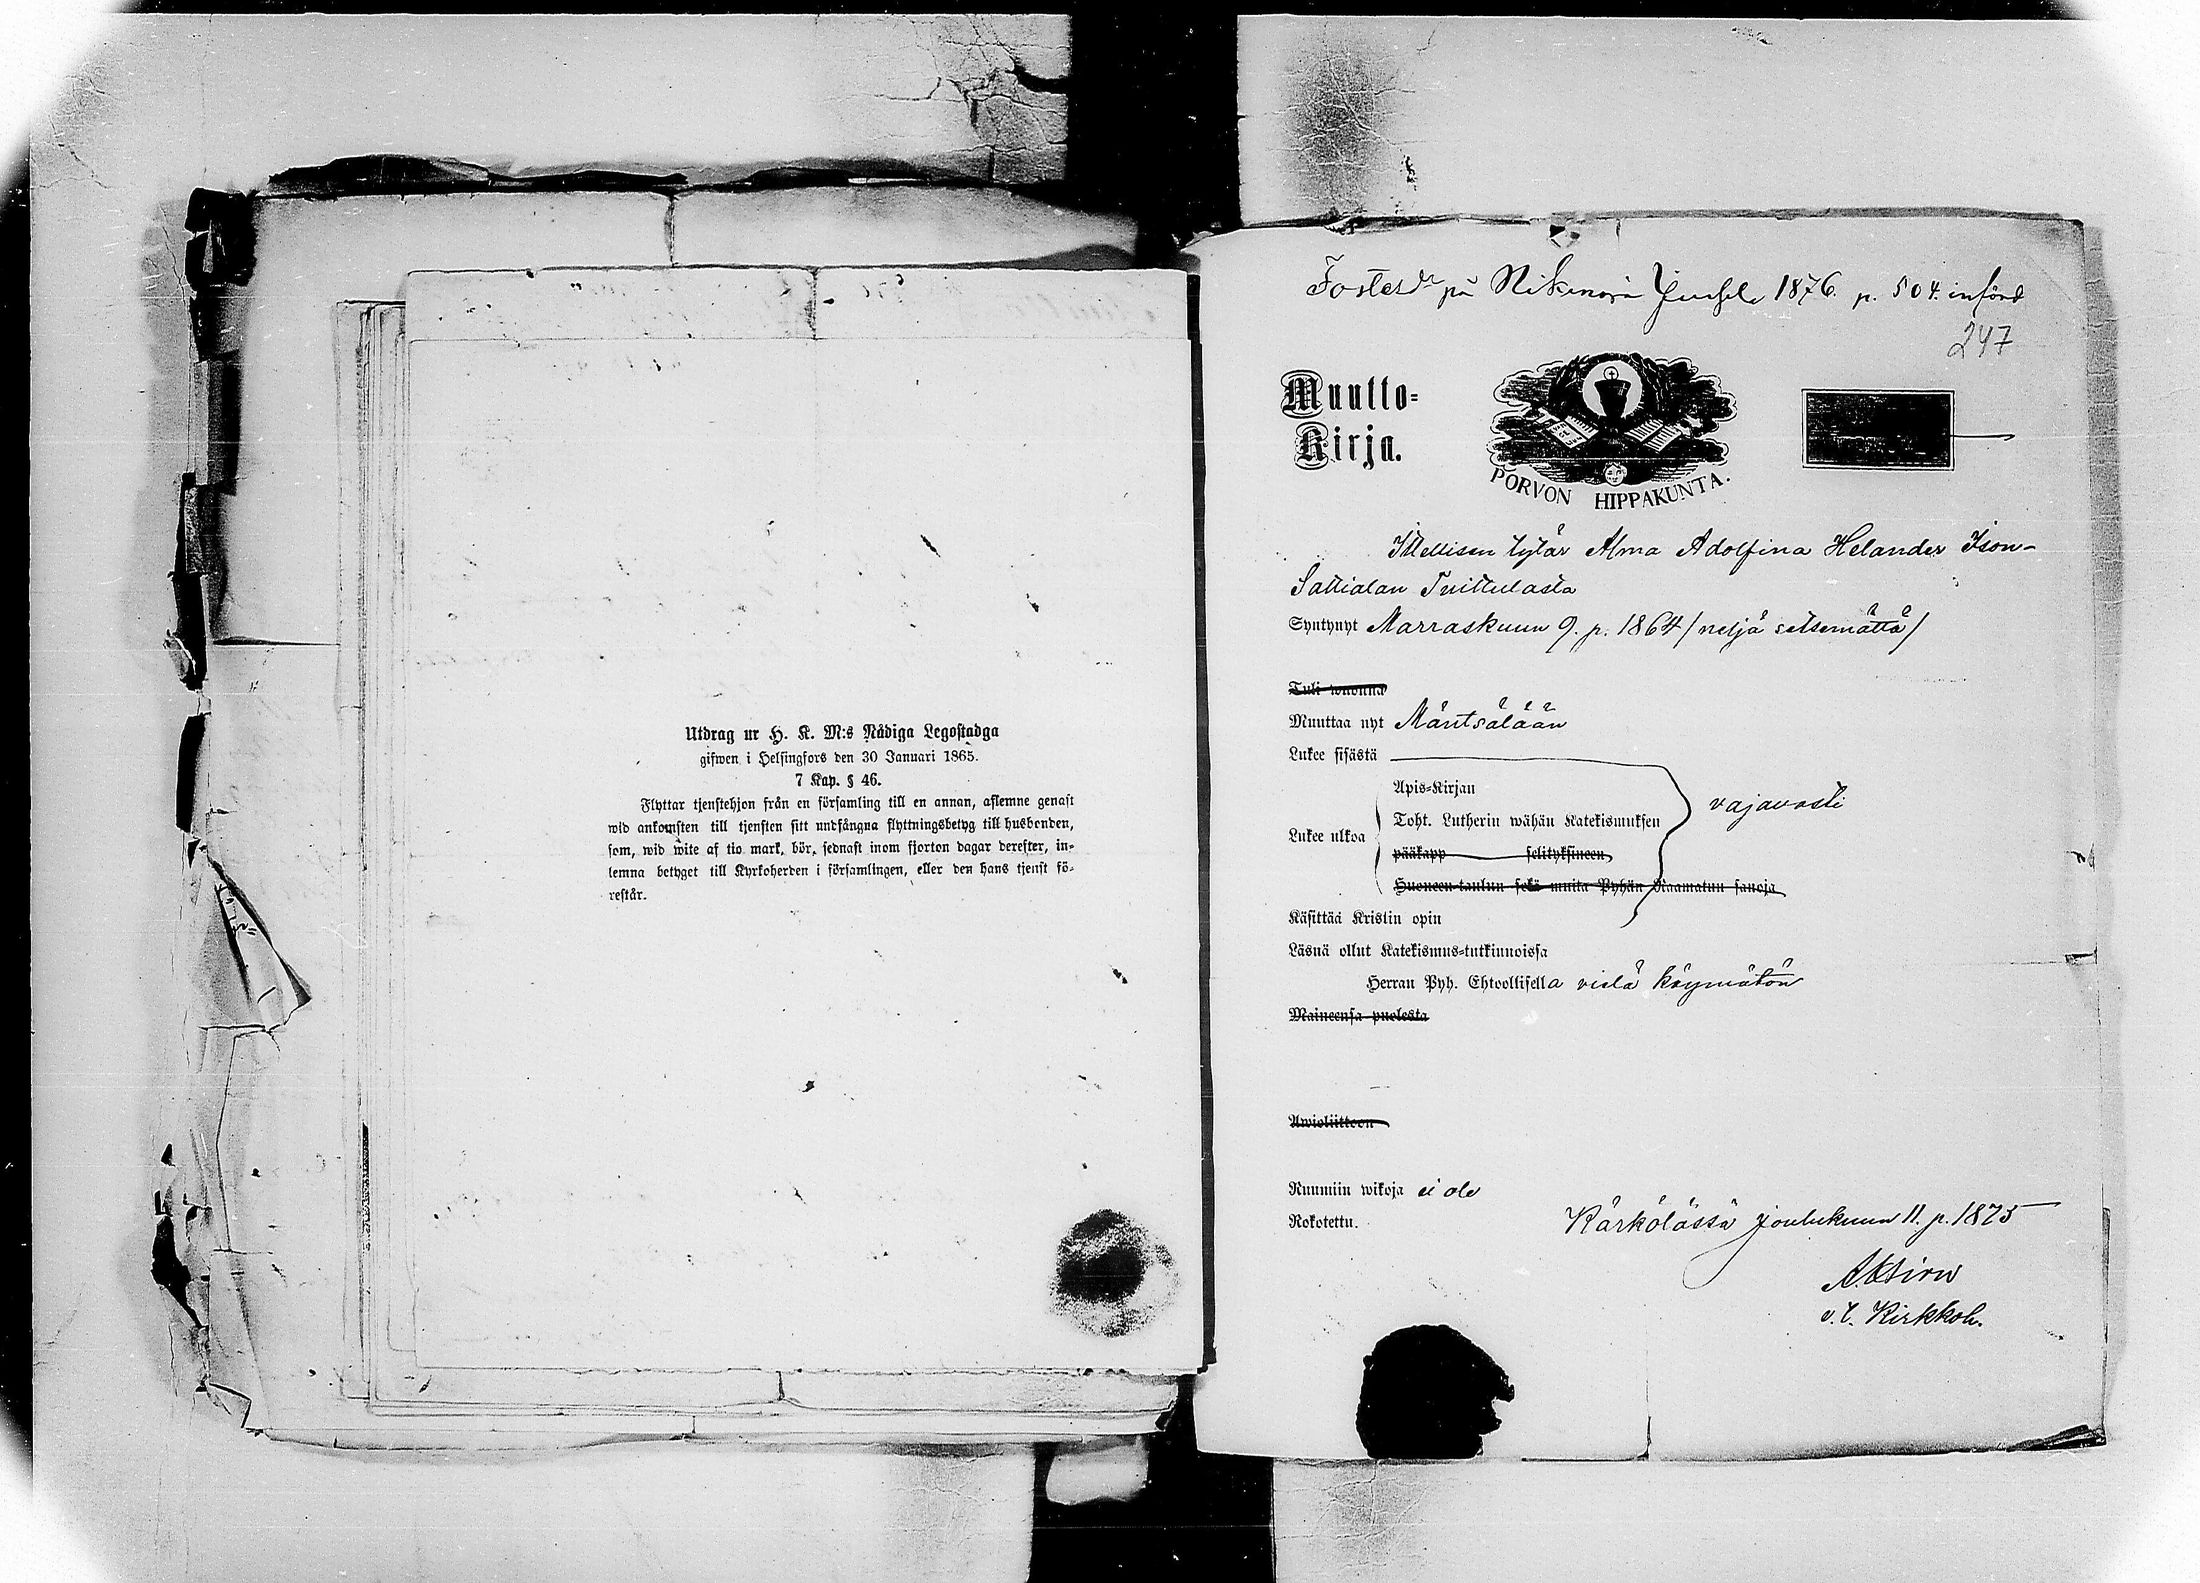 Utdrag ur H. K. M:s Nådiga Legostadga
gifwen i Helsingfors den 30 Januari 1865.
7 Kap. § 46.
Flyttar tjenstehjon från en församling till en annan, aflemne genast
wid ankomsten till tjensten sitt undfångna flyttningsbetyg till husbonden,
som, wid wite af tio mark, bör, sednast inom fjorton dagar derefter, in-
lemna betyget till Kyrkoherden i församlingen, eller den hans tjenst fö-
restår.
på 1876. p. 504. införd
247
Muutto-
Kirja.
PORVON HIPPAKUNTA.
Itellisen tytär Alma Adolfina Helander Ison-
Sattialan Tuittulasta
Syntynyt Marraskuun 9. p. 1864 /neljä seitsemättä/
Tuli wuonna
Muuttaa nyt Mäntsälään
Lukee sisästä
Apis-Kirjan
vajavasti
Toht. Lutherin wähän Katekismuksen
Lukee ulkoa
pääkapp selityksineen
Huoneen-taulun sekä muita Pyhän Raamatun sanoja
Käsittää Kristin opin
Läsnä ollut Katekismus-tutkinnoissa
Herran Pyh. Ehtoollisella vielä käymätön
Maineensa puolesta
Awioliittoon
Ruumiin wikoja ei ole
Rokotettu.
Kärkölässä Joulukuun 11. p. 1875
v. t. Kirkkoh.